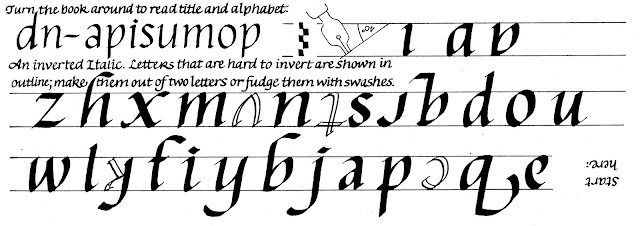 Turn the book around to read title and alphabet.
dn-apisumop ı a ʋ
40°
An inverted Italic. Letters that are hard to invert are shown in
outline; make them out of two letters or fudge them with swashes.
z h x m n s ɹ b d o u
w l y f i y b j a p ɔ q e
Start
here: